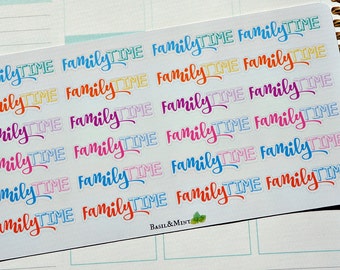 FamilyTIME FamilyTIME FamilyTIME FamilyTIME
FamilyTIME FamilyTIME FamilyTIME FamilyTIME
FamilyTIME FamilyTIME FamilyTIME FamilyTIME
FamilyTIME FamilyTIME FamilyTIME FamilyTIME
FamilyTIME FamilyTIME FamilyTIME FamilyTIME
FamilyTIME FamilyTIME FamilyTIME FamilyTIME
BASIL&MINT